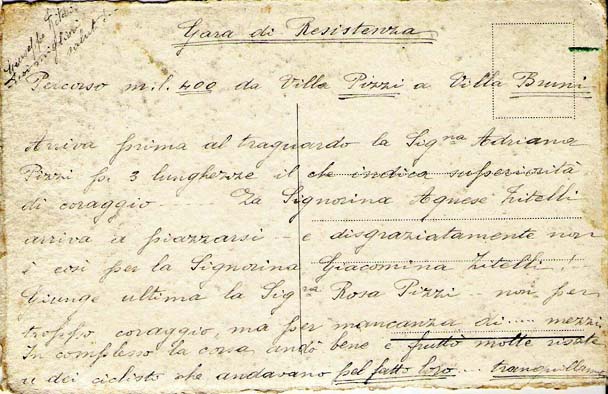 Gara di Resistenza
Percorso m.l. 400 da Villa Pizzi a Villa Bruni
Arriva prima al traguardo la Sigⁿᵃ Adriana
Pizzi p. 3 lunghezze il che indica superiorità
di coraggio — La Signorina Agnese Zitelli
arriva a piazzarsi — e disgraziatamente non
è così per la Signorina Giacomina Zitelli! —
Giunge ultima la Sigⁿᵃ Rosa Pizzi — non per
troppo coraggio, ma per mancanza di .... mezzi.
In complesso la corsa andò bene e fruttò molte risate
a dei ciclisti che andavano pel fatto loro ....